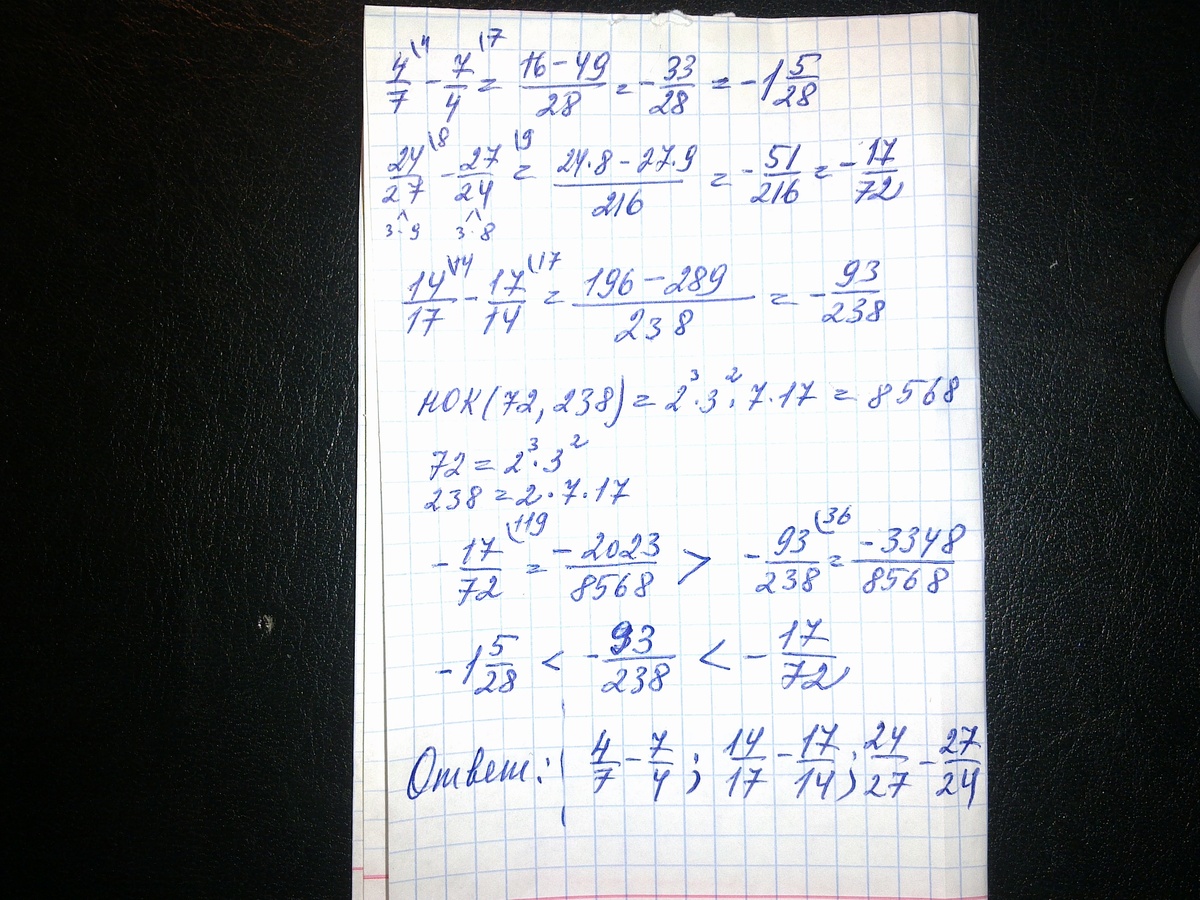 4/7\4 - 7/4\7 = (16-49)/28 = -33/28 = -1 5/28
24/27\8 - 27/24\9 = (24·8-27·9)/216 = -51/216 = -17/72
3·9 3·8
14/17\14 - 17/14\17 = (196-289)/238 = -93/238
НОК(72, 238) = 2³·3²·7·17 = 8568
72 = 2³·3²
238 = 2·7·17
-17/72\119 = -2023/8568 > -93/238\36 = -3348/8568
-1 5/28 < -93/238 < -17/72
Ответ: 4/7 - 7/4; 14/17 - 17/14; 24/27 - 27/24